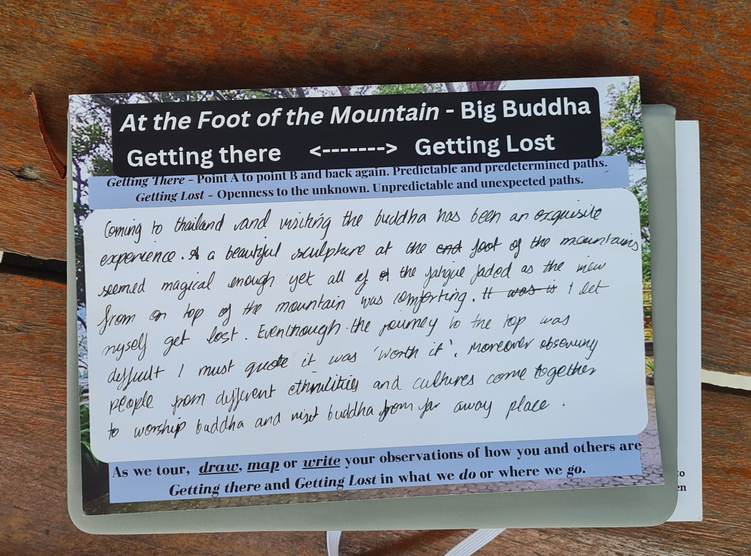 At the Foot of the Mountain - Big Buddha
Getting there <-------> Getting Lost
Getting There - Point A to point B and back again. Predictable and predetermined paths.
Getting Lost - Openness to the unknown. Unpredictable and unexpected paths.
Coming to thailand and visiting the buddha has been an exquisite
experience. A a beautiful sculpture at the end foot of the mountains
seemed magical enough yet all of the fatigue faded as the view
from on top of the mountain was comforting. It was is I let
myself get lost. Eventhough the journey to the top was
difficult I must quote it was 'worth it'. Moreover observing
people from different ethnilities and cultures come together
to worship buddha and visit buddha from far away place.
As we tour, draw, map or write your observations of how you and others are
Getting there and Getting Lost in what we do or where we go.
to
en